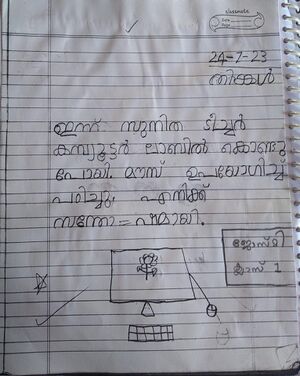 classmate
Date
Page
24-7-23
തിങ്കൾ
ഇന്ന് സുനിത ടീച്ചർ
കമ്പ്യൂട്ടർ ലാബിൽ കൊണ്ടു
പോയി. മൗസ് ഉപയോഗിച്ച്
പഠിച്ചു. എനിക്ക്
സന്തോഷമായി.
ജോസ്മി
ക്ലാസ് 1